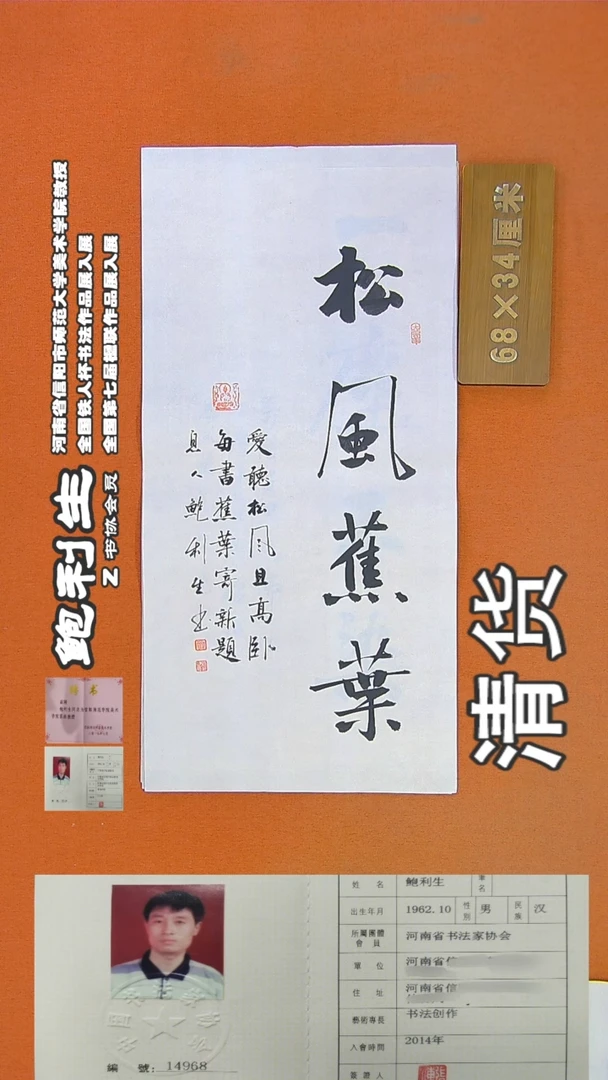 松風蕉葉
愛聽松風且高卧
每書蕉葉寄新題
息人鮑利生書
68×34厘米
河南省信阳市师范大学美术学院教授
全国铁人杯书法作品展入展
全国第七届楹联作品展入展
鲍利生
Z书协会员
清货
姓名
鲍利生
筆名
出生年月
1962.10
性别
男
民族
汉
所屬團體會員
河南省书法家协会
單位
河南省信
住址
河南省信
藝術專長
书法创作
入會時間
2014年
簽證人
編號:14968